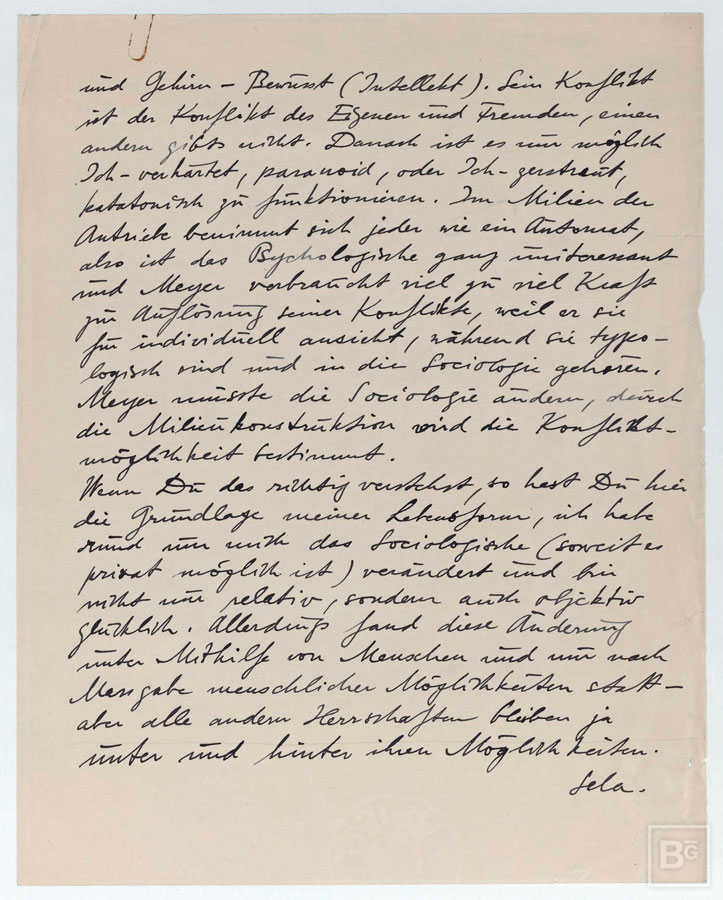 und Gehirn – Bewusst (Intellekt). Sein Konflikt
ist der Konflikt des Eigenen und Fremden, einen
andern gibts nicht. Danach ist es nur möglich
Ich-verhärtet, paranoid, oder Ich-zerstreut,
katatonisch zu funktionieren. Im Milieu der
Antriebe benimmt sich jeder wie ein Automat,
also ist das Psychologische ganz uninteressant
und Meyer verbraucht viel zu viel Kraft
zur Auflösung seiner Konflikte, weil er sie
für individuell ansieht, während sie typo-
logisch sind und in die Sociologie gehören.
Meyer müsste die Sociologie ändern, durch
die Milieukonstruktion wird die Konflikt-
möglichkeit bestimmt.
Wenn Du das richtig verstehst, so hast Du hier
die Grundlage meiner Lebensform, ich habe
rund um mich das Sociologische (soweit es
privat möglich ist) verändert und bin
nicht nur relativ, sondern auch objektiv
glücklich. Allerdings fand diese Änderung
unter Mithilfe von Menschen und nur nach
Massgabe menschlicher Möglichkeiten statt –
aber alle andern Herrschaften bleiben ja
unter und hinter ihren Möglichkeiten.
Sela.
BG